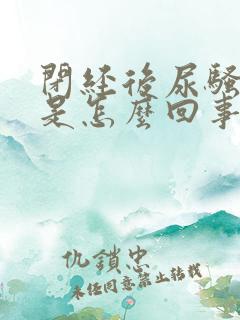 閉经後尿騷
是怎麼回事
仇鎖忠
未经同意禁止转载